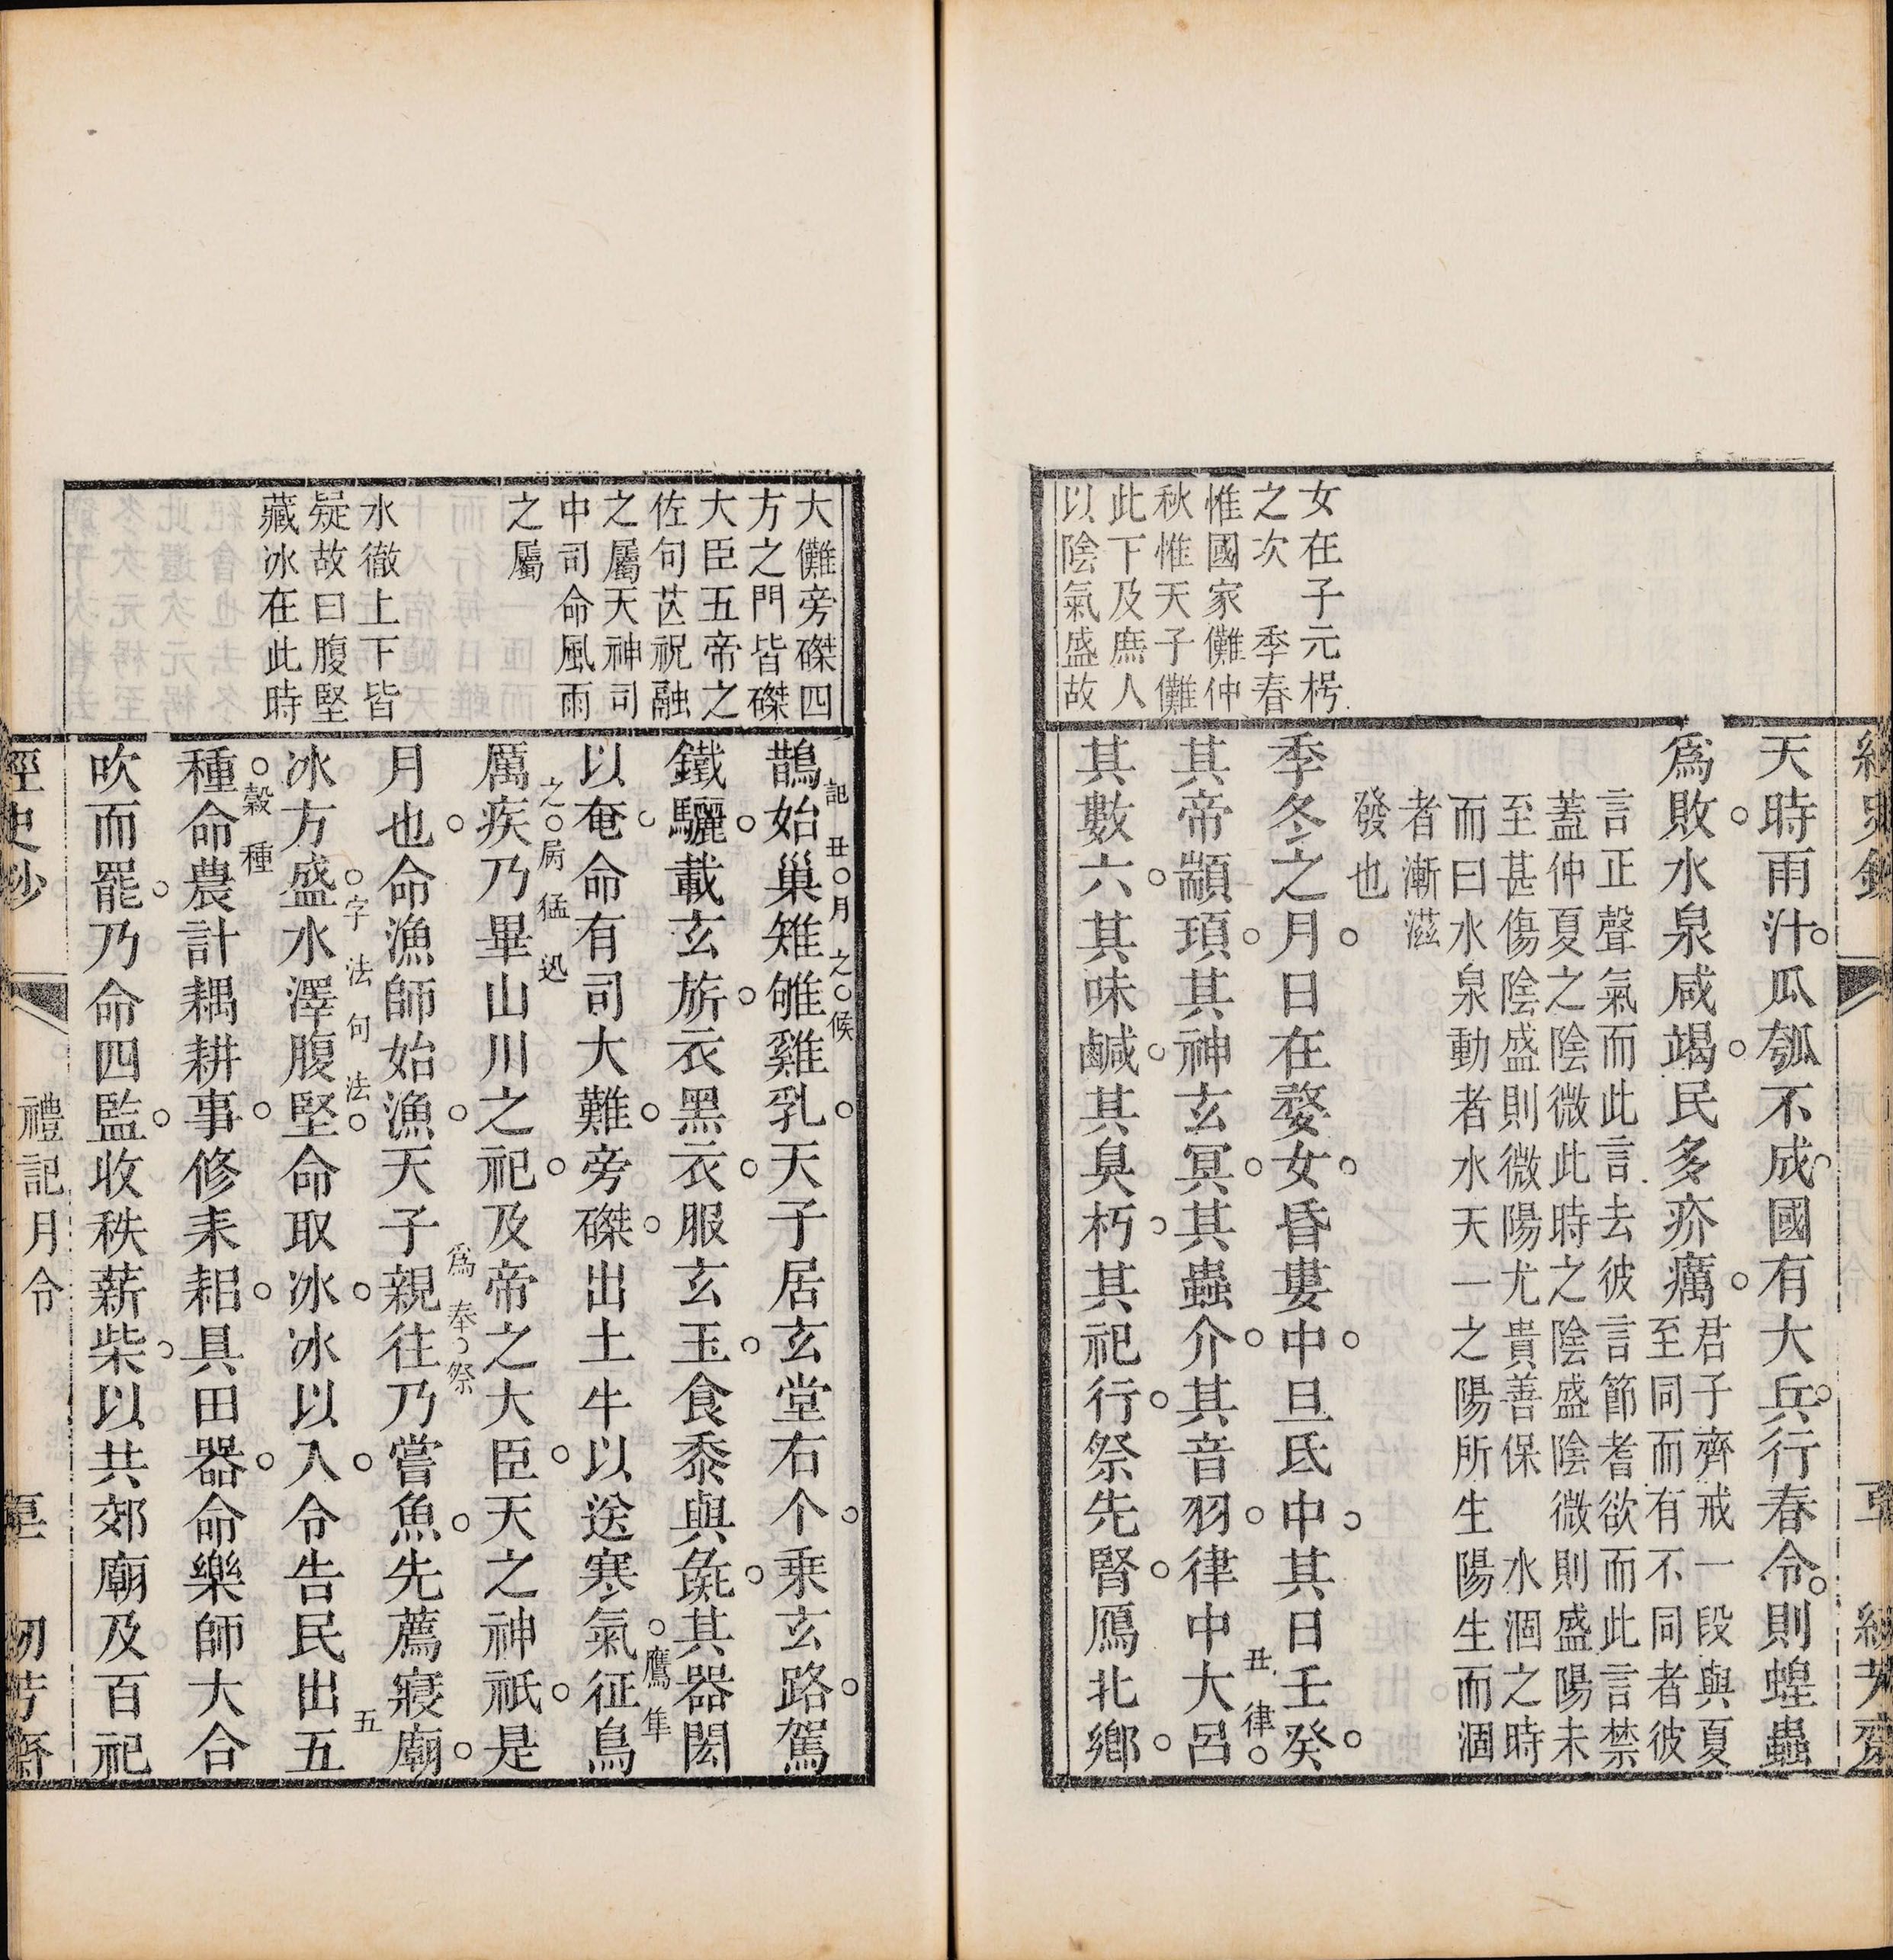 女在子元枵
之次　季春
惟國家儺仲
秋惟天子儺
此下及庶人
以陰氣盛故
天時雨汁瓜瓠不成國有大兵行春令則蝗蟲
爲敗水泉咸竭民多疥癘君子齊戒一段與夏
至同而有不同者彼
言正聲氣而此言去彼言節耆欲而此言禁
蓋仲夏之陰微此時之陰盛陰微則盛陽未
至甚傷陰盛則微陽尤貴善保　水涸之時
而曰水泉動者水天一之陽所生陽生而涸
者漸滋
發也
季冬之月日在婺女昏婁中旦氐中其日壬癸
丑律
其帝顓頊其神玄冥其蟲介其音羽律中大呂
其數六其味鹹其臭朽其祀行祭先腎鴈北鄉
大儺旁磔四
方之門皆磔
大臣五帝之
佐句芒祝融
之屬天神司
中司命風雨
之屬
水徹上下皆
凝故曰腹堅
藏冰在此時
記丑月之候
鵲始巢雉雊雞乳天子居玄堂右个乘玄路駕
鐵驪載玄旂衣黑衣服玄玉食黍與彘其器閎
鷹隼
以奄命有司大難旁磔出土牛以送寒氣征鳥
之屬猛迅
厲疾乃畢山川之祀及帝之大臣天之神祇是
爲奉祭
月也命漁師始漁天子親往乃嘗魚先薦寢廟
字法句法
五
冰方盛水澤腹堅命取冰冰以入令告民出五
穀種
種命農計耦耕事修耒耜具田器命樂師大合
吹而罷乃命四監收秩薪柴以共郊廟及百祀
經史鈔
禮記月令